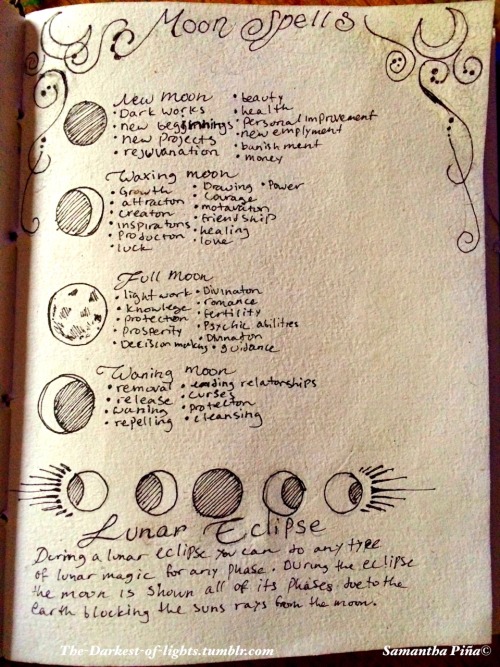 Moon Spells
New moon
• Dark works
• new beginnings
• new projects
• rejuvanation
• beauty
• health
• Personal improvement
• new emplyment
• banishment
• money
Waxing moon
• Growth
• attraction
• creaton
• inspirations
• Producton
• luck
• Drawing
• Courage
• motavaton
• friendship
• healing
• love
• Power
Full moon
• lightwork
• knowlege
• protection
• prosperity
• Decision making
• Divinaton
• romance
• fertility
• Psychic abilities
• Divinaton
• guidance
Waning Moon
• removal
• release
• waning
• repelling
• ending relatonships
• curses
• protecton
• cleansing
Lunar Eclipse
During a lunar eclipse you can do any type
of lunar magic for any phase. During the eclipse
the moon is shown all of its phases due to the
earth blocking the suns rays from the moon.
The-Darkest-of-lights.tumblr.com
Samantha Piña©